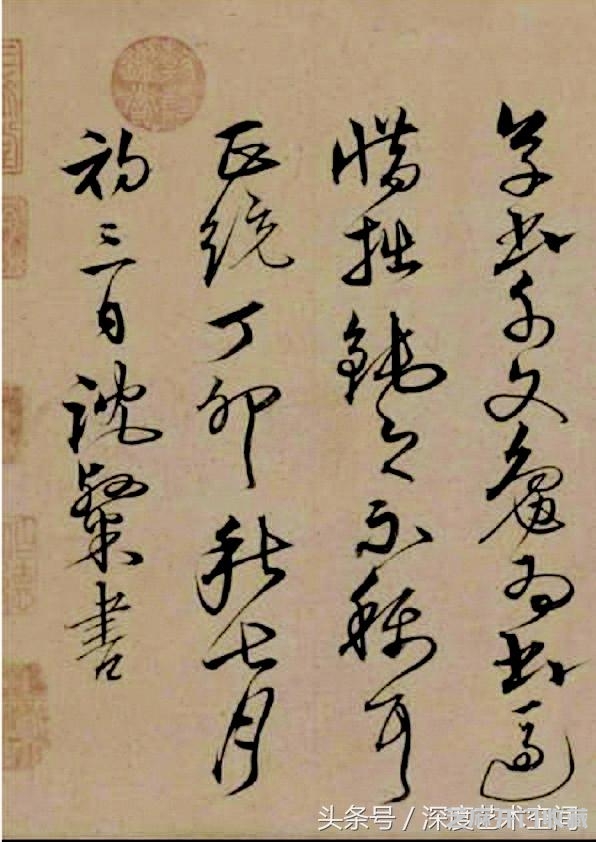 草書千文為書一過
惜拙鈍之不稱耳
正統丁卯秋七月
初三日沈粲書
头条号／深度艺术空间